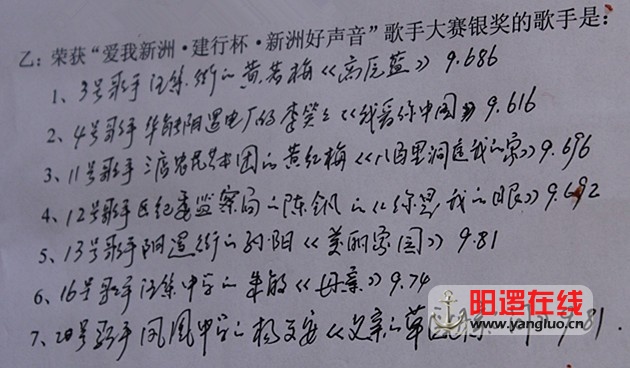 乙：荣获“爱我新洲·建行杯·新洲好声音”歌手大赛银奖的歌手是：
1、3号歌手汪集街的黄若梅《青花蓝》9.686
2、4号歌手华能阳逻电厂的李笑《我爱你中国》9.616
3、11号歌手三店农民艺术团的黄红梅《八百里洞庭我的家》9.696
4、12号歌手区纪委监察局的陈钢的《你是我的眼》9.692
5、13号歌手阳逻街的孙阳《美丽家园》9.81
6、16号歌手汪集中学的朱敏《母亲》9.74
7、20号歌手凤凰中学的杨文安《父亲的草原 9.81
阳逻在线
www.yangluo.cn